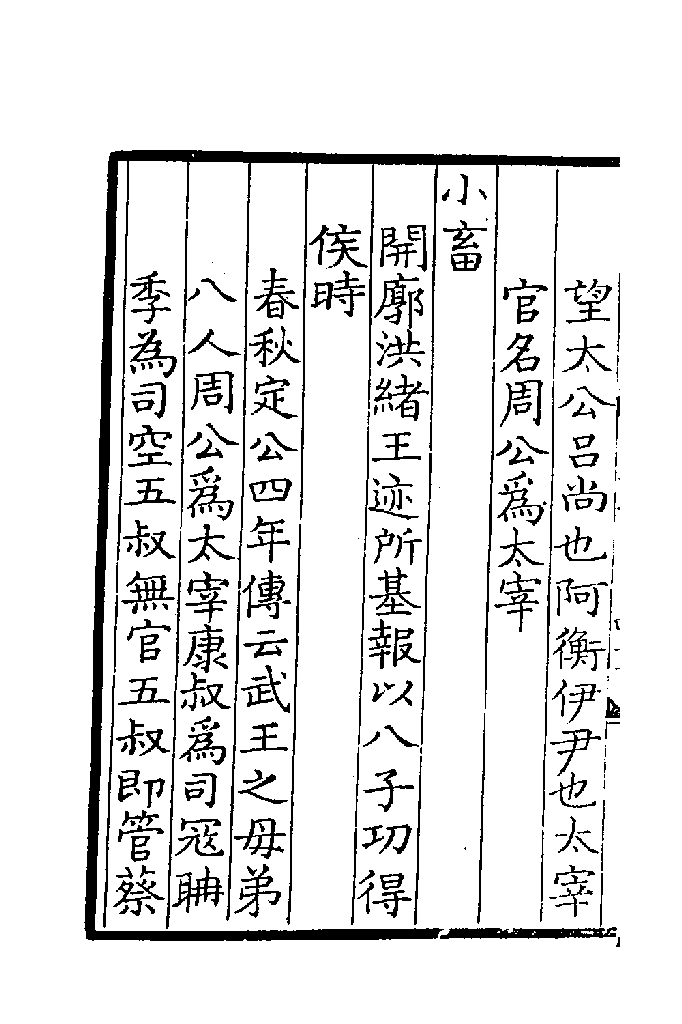 望太公吕尚也阿衡伊尹也太宰
官名周公爲太宰
小畜
開廓洪緒王迹所基報以八子功得
俟時
春秋定公四年傳云武王之母弟
八人周公爲太宰康叔爲司冦聃
季為司空五叔無官五叔即管蔡